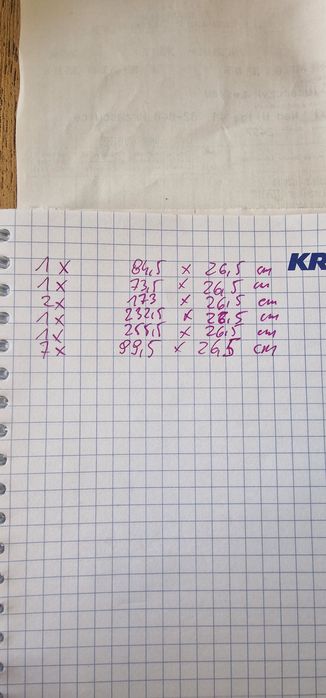 KR
1 x 84,5 x 26,5 cm
1 x 73,5 x 26,5 cm
2 x 173 x 26,5 cm
1 x 232,5 x 26,5 cm
1 x 255,5 x 26,5 cm
7 x 99,5 x 26,5 cm